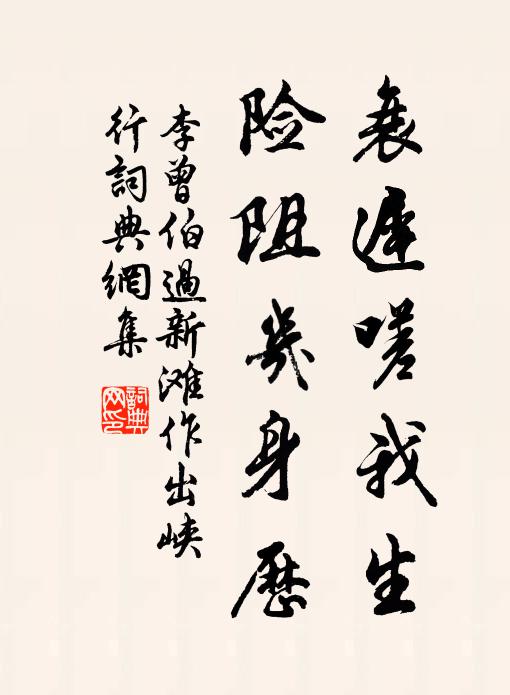 衰遲嗟我生
险阻幾身歷
李曾伯過新滩作出峽
行詞典網集
詞典
网印